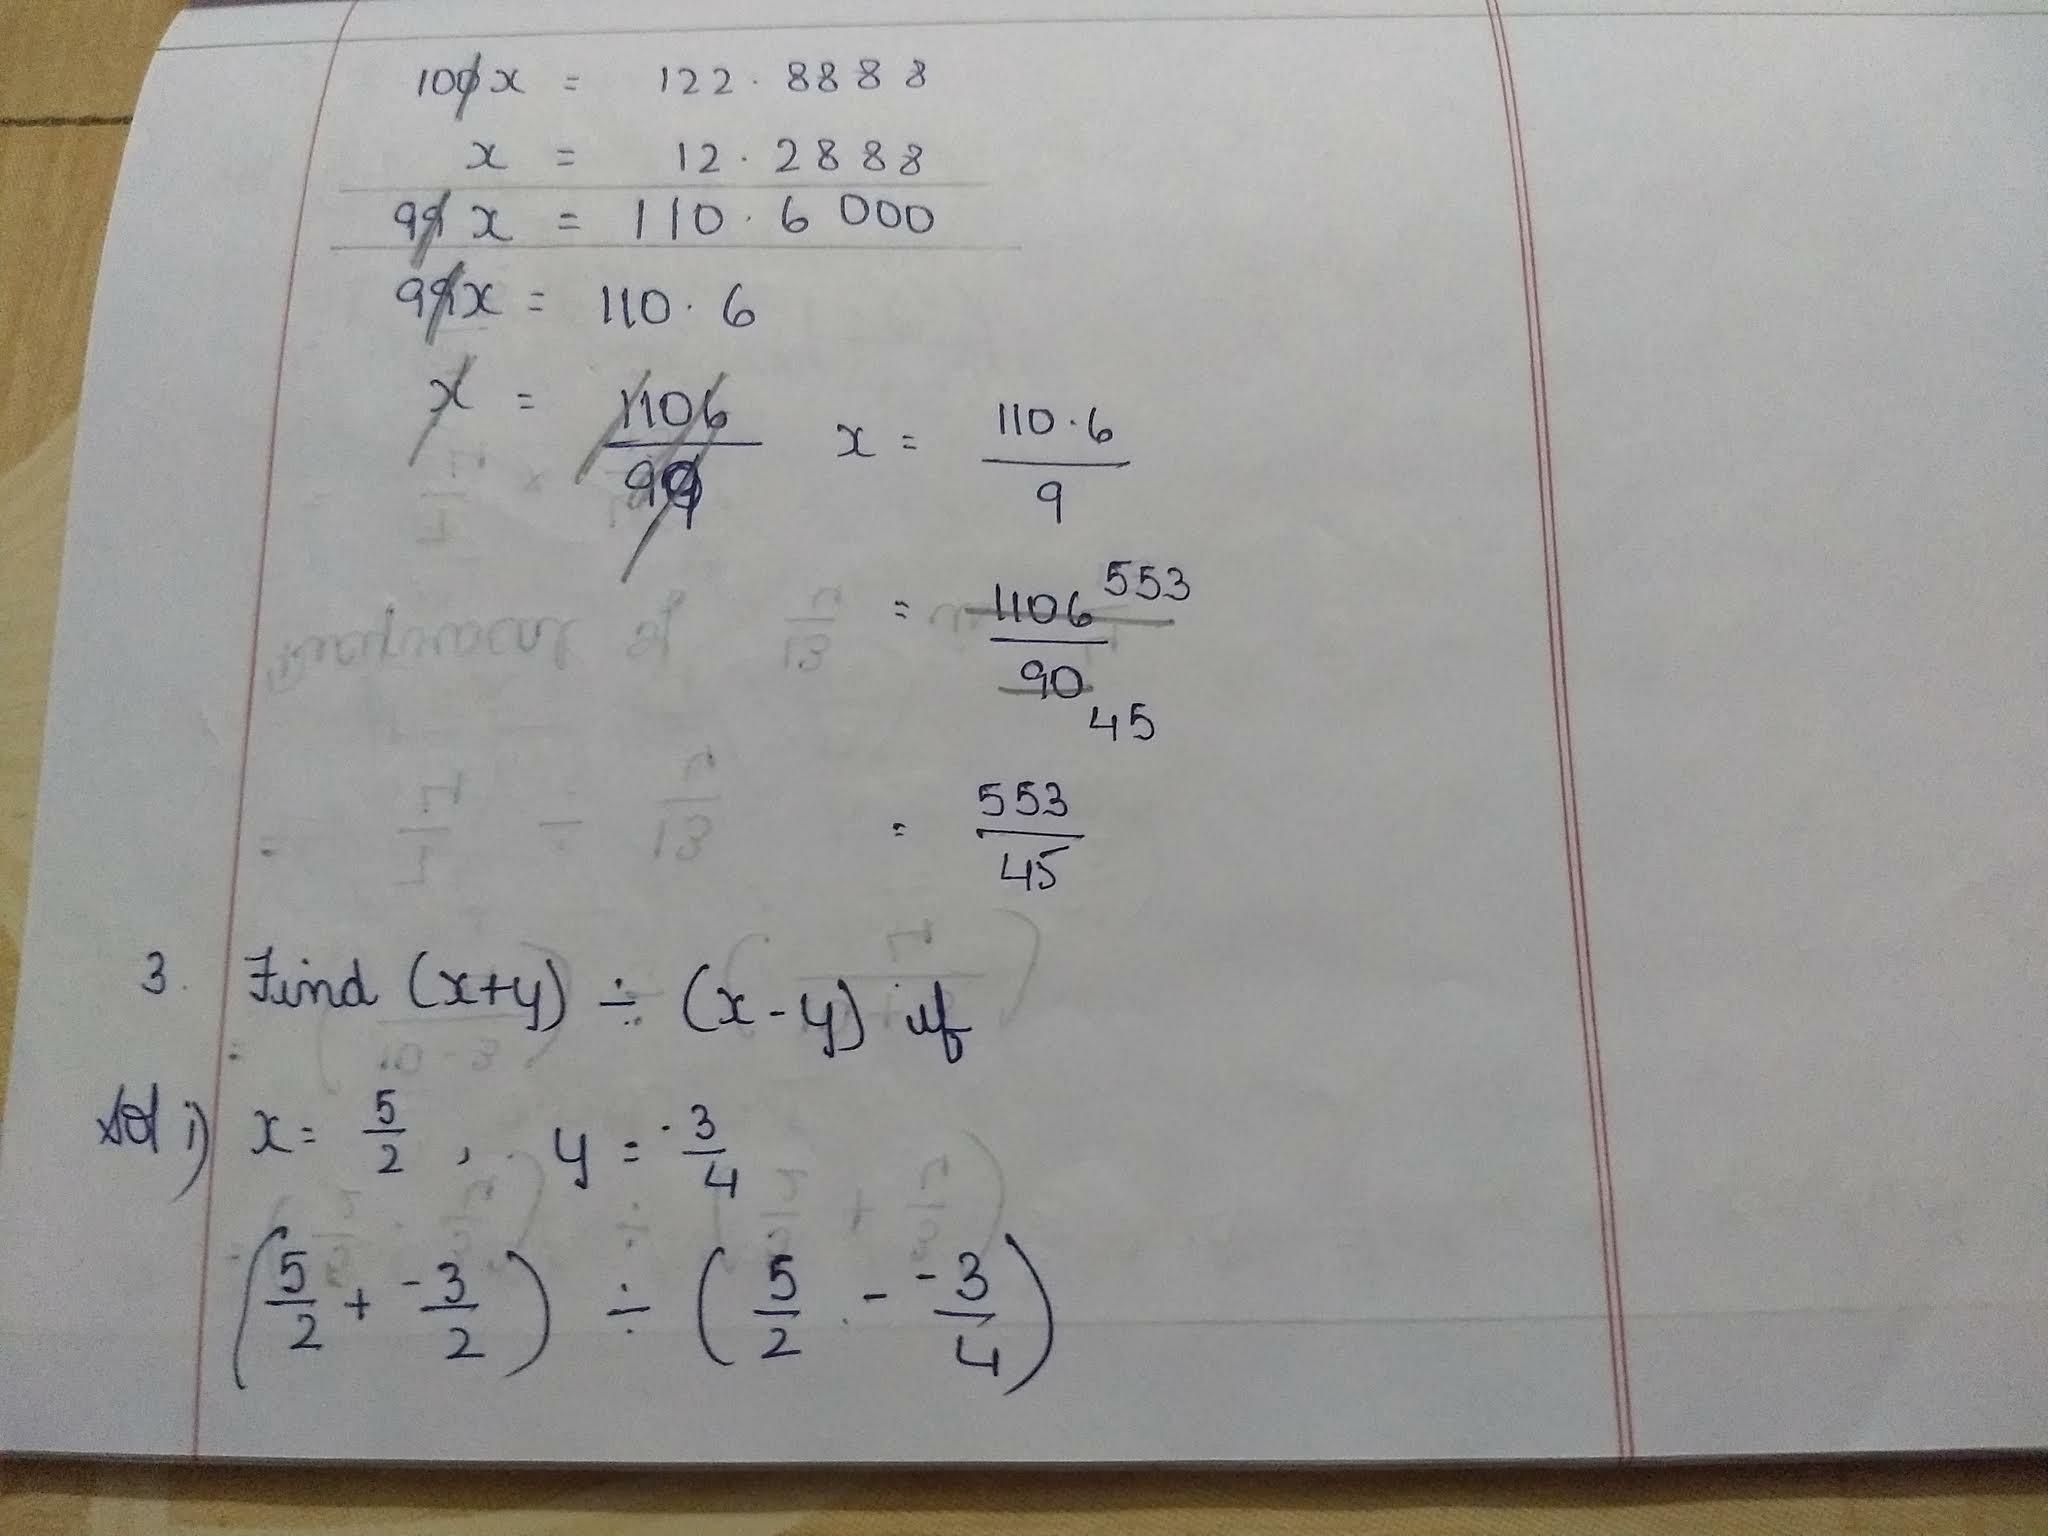 10x = 122.8888
x = 12.2888
9x = 110.6000
9x = 110.6
x = 1106/99 x = 110.6/9
= 1106/90 553 45
= 553/45
3. Find (x+y) ÷ (x-y) if
Sol i) x = 5/2, y = -3/4
(5/2 + -3/2) ÷ (5/2 - -3/4)